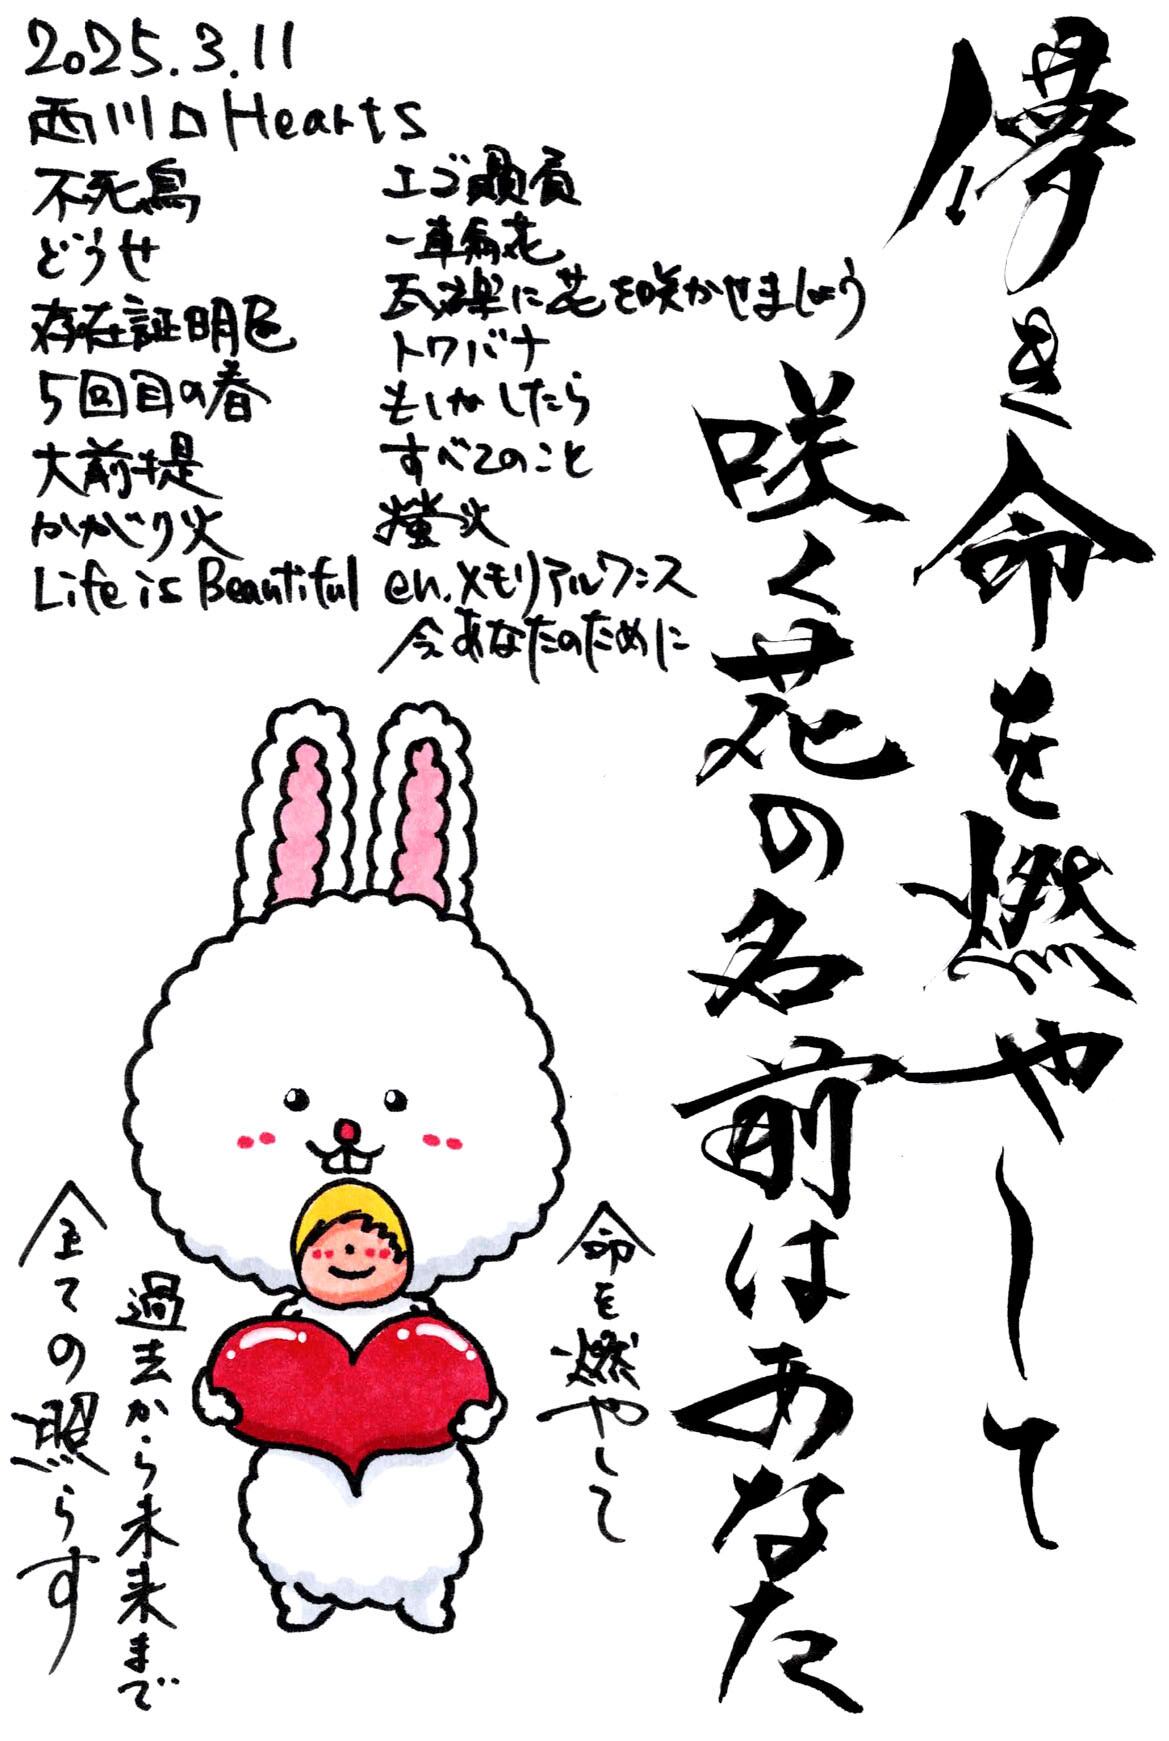 2025.3.11
西川口Hearts
不死鳥
どうせ
存在証明
5回目の春
大前提
かがり火
Life is Beautiful
エゴ贔屓
一車両花
瓦礫に花を咲かせましょう
トワバナ
もしかしたら
すべてのこと
螢火
en.メモリアルワンス
今あなたのために
儚き命を燃やして
咲く花の名前はあなた
命を燃やして
過去から未来まで
全ての照らす